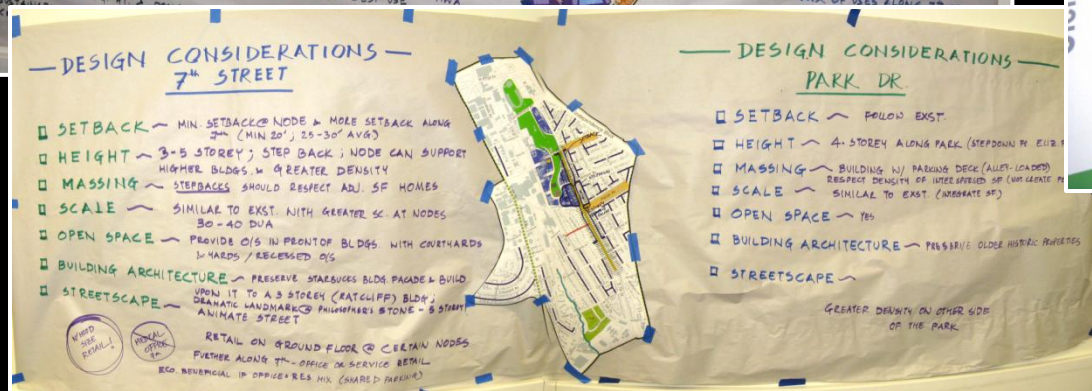 DESIGN CONSIDERATIONS
7TH STREET
SETBACK ~ MIN. SETBACK @ NODE & MORE SETBACK ALONG
7TH (MIN 20'; 25-30' AVG)
HEIGHT ~ 3-5 STOREY; STEP BACK; NODE CAN SUPPORT
HIGHER BLDGS. & GREATER DENSITY
MASSING ~ STEPBACKS SHOULD RESPECT ADJ. SF HOMES
SCALE ~ SIMILAR TO EXST. WITH GREATER SC. AT NODES
30-40 DUA
OPEN SPACE ~ PROVIDE O/S IN FRONT OF BLDGS. WITH COURTYARDS
& YARDS / RECESSED O/S
BUILDING ARCHITECTURE ~ PRESERVE STARBUCKS BLDG. FACADE & BUILD
UPON IT TO A 3 STOREY (RATCLIFF) BLDG;
STREETSCAPE ~ DRAMATIC LANDMARK @ PHILOSOPHER'S STONE - 5 STOREY
ANIMATE STREET
WHOOD
SIZE
RETAIL!
MEDICAL
OFFICE
7TH
RETAIL ON GROUND FLOOR @ CERTAIN NODES
FURTHER ALONG 7TH - OFFICE OR SERVICE RETAIL
ECO. BENEFICIAL IF OFFICE + RES MIX (SHARED PARKING)
DESIGN CONSIDERATIONS
PARK DR.
SETBACK ~ FOLLOW EXST.
HEIGHT ~ 4-STOREY ALONG PARK (STEPDOWN
MASSING ~ BUILDING W/ PARKING DECK (ALLEY-LOADED)
RESPECT DENSITY OF INTERSPERSED SF (NOT CREATE
SCALE ~ SIMILAR TO EXST. (INTEGRATE SF)
OPEN SPACE ~ YES
BUILDING ARCHITECTURE ~ PRESERVE OLDER HISTORIC PROPERTIES
STREETSCAPE ~
GREATER DENSITY ON OTHER SIDE
OF THE PARK